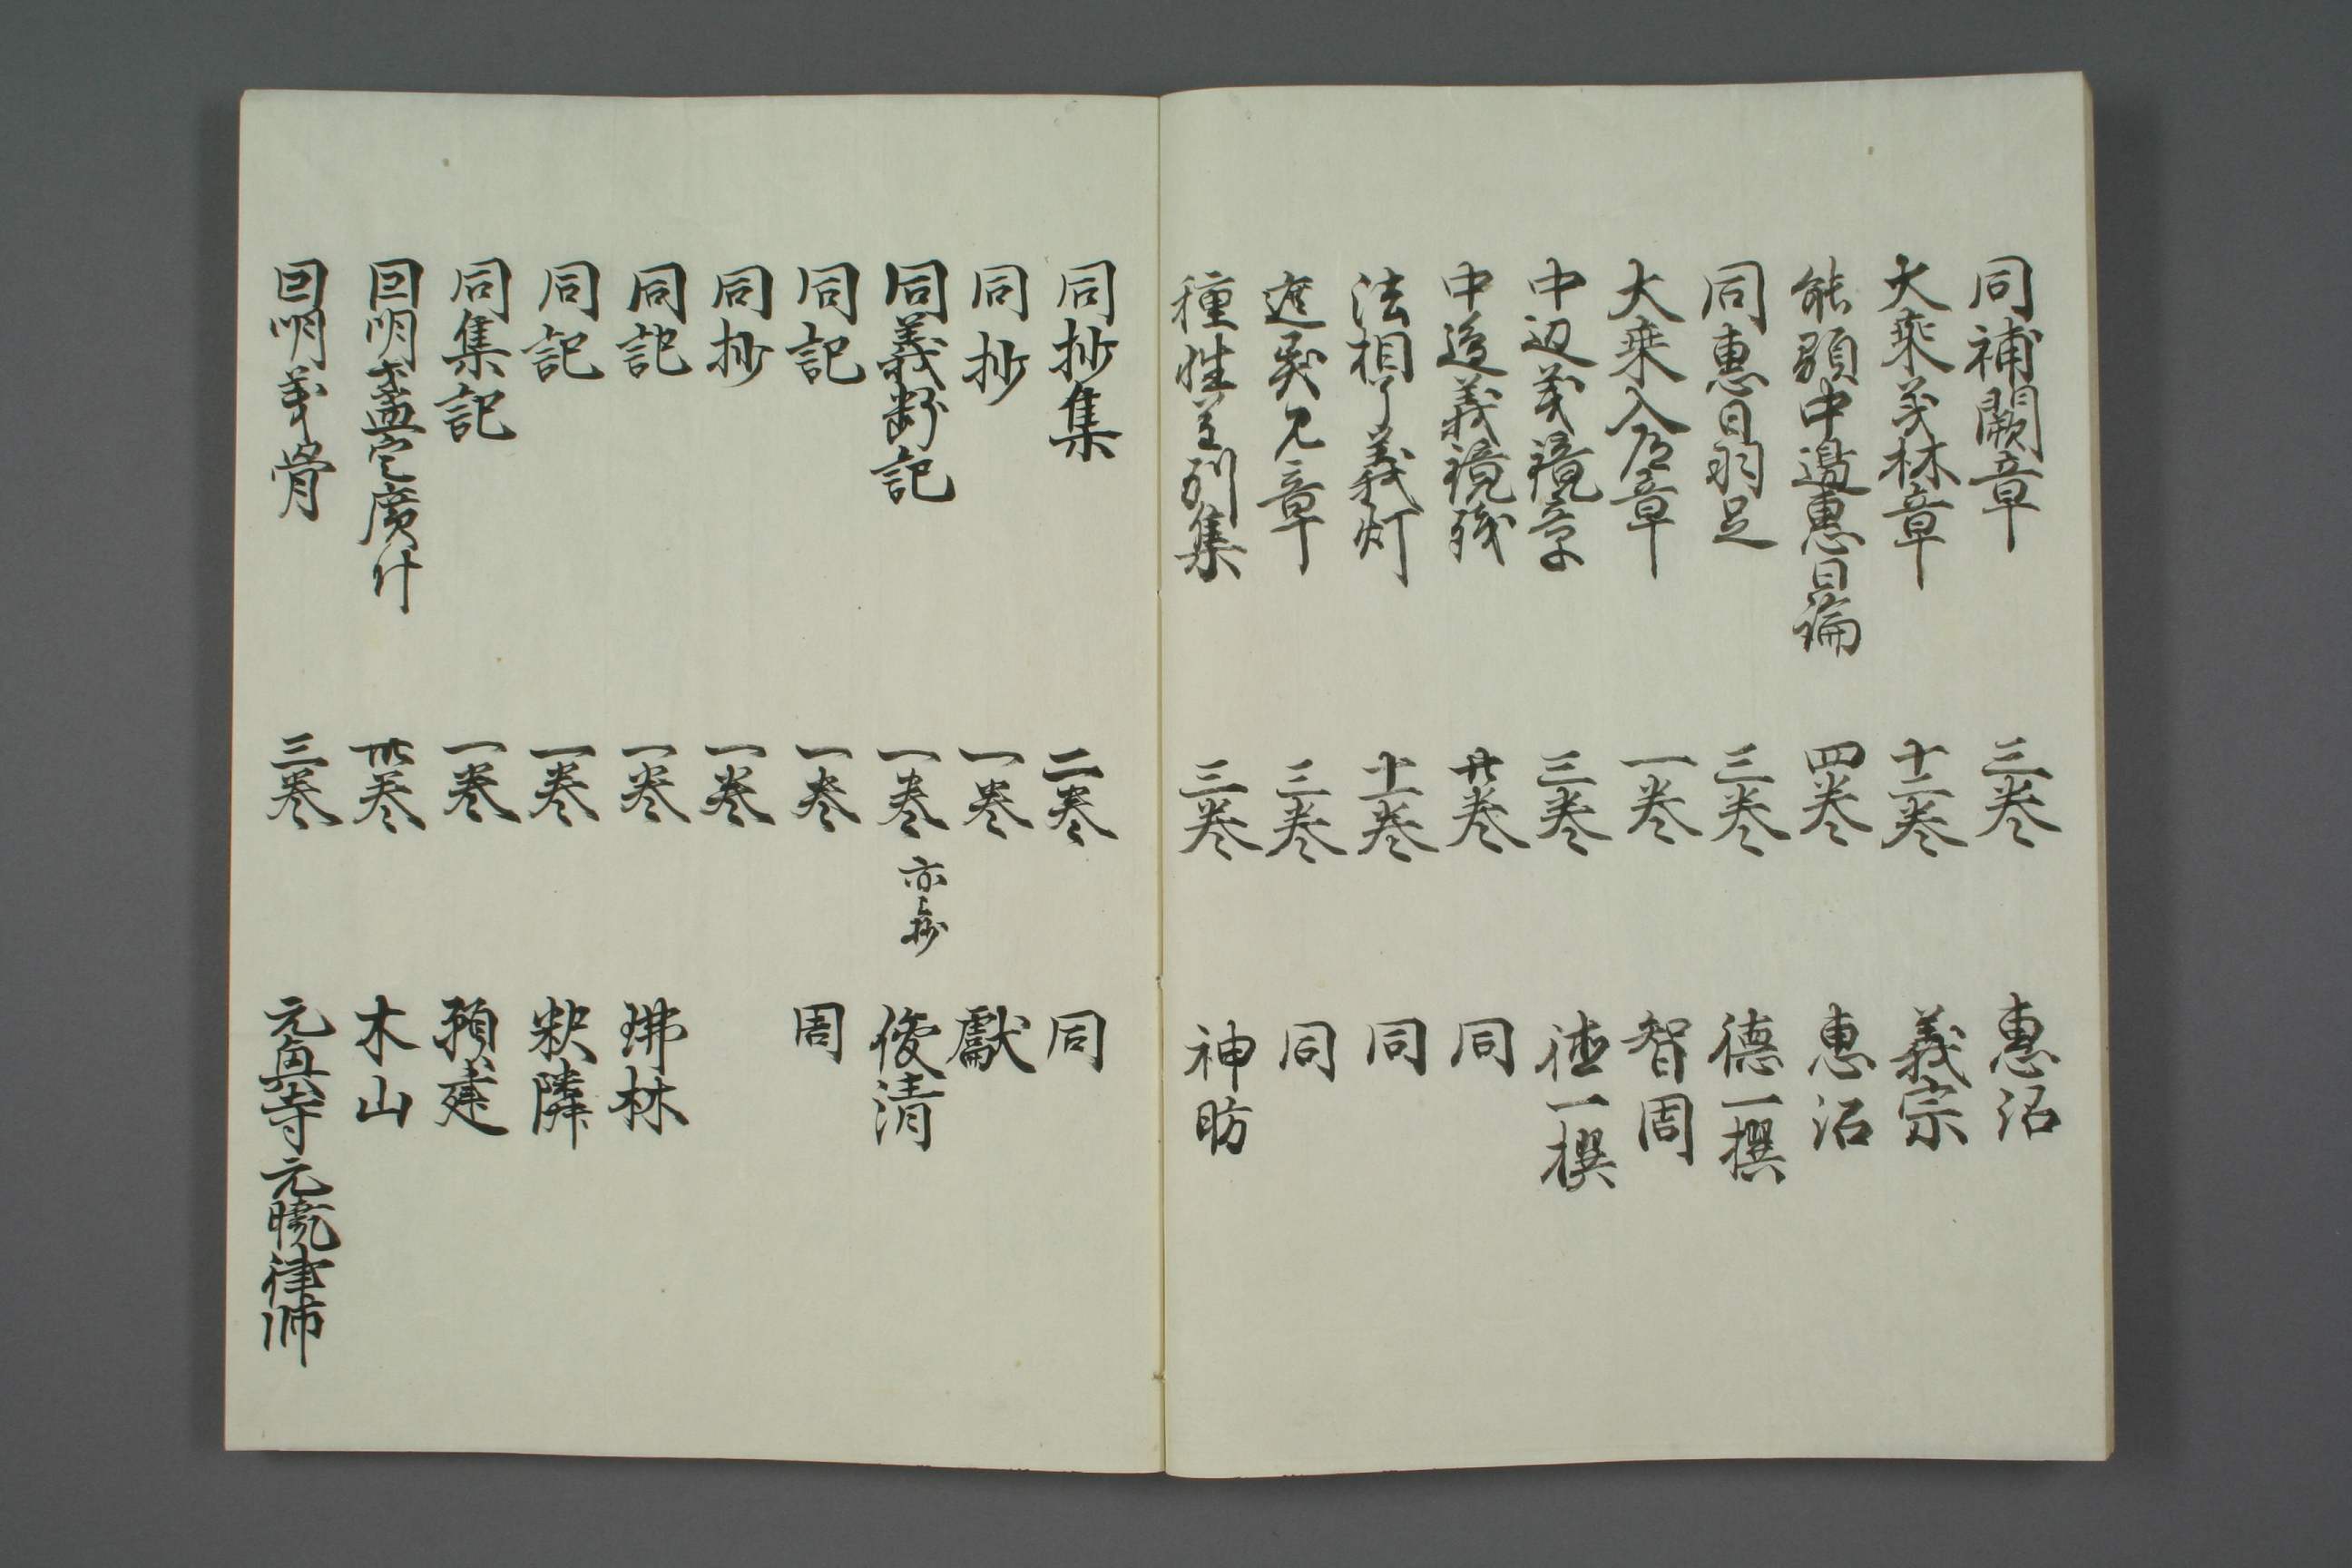 同補闕章 三巻 惠沼
大乗義林章 十二巻 義宗
能顕中邊惠日論 四巻 惠沼
同惠日羽足 三巻 德一撰
大乗入道章 一巻 智周
中辺義鏡章 三巻 徳一撰
中邊義鏡殘 廿巻 同
法相了義灯 十一巻 同
遮異見章 三巻 同
種性差別集 三巻 神昉
同抄集 二巻 同
同抄 一巻 獻
同義断記 一巻 亦抄 俊清
同記 一巻 周
同抄 一巻
同記 一巻 琳林
同記 一巻 釈隣
同集記 一巻 預建
因明 定賓疏 廿巻 木山
因明義骨 三巻 元興寺元曉律師